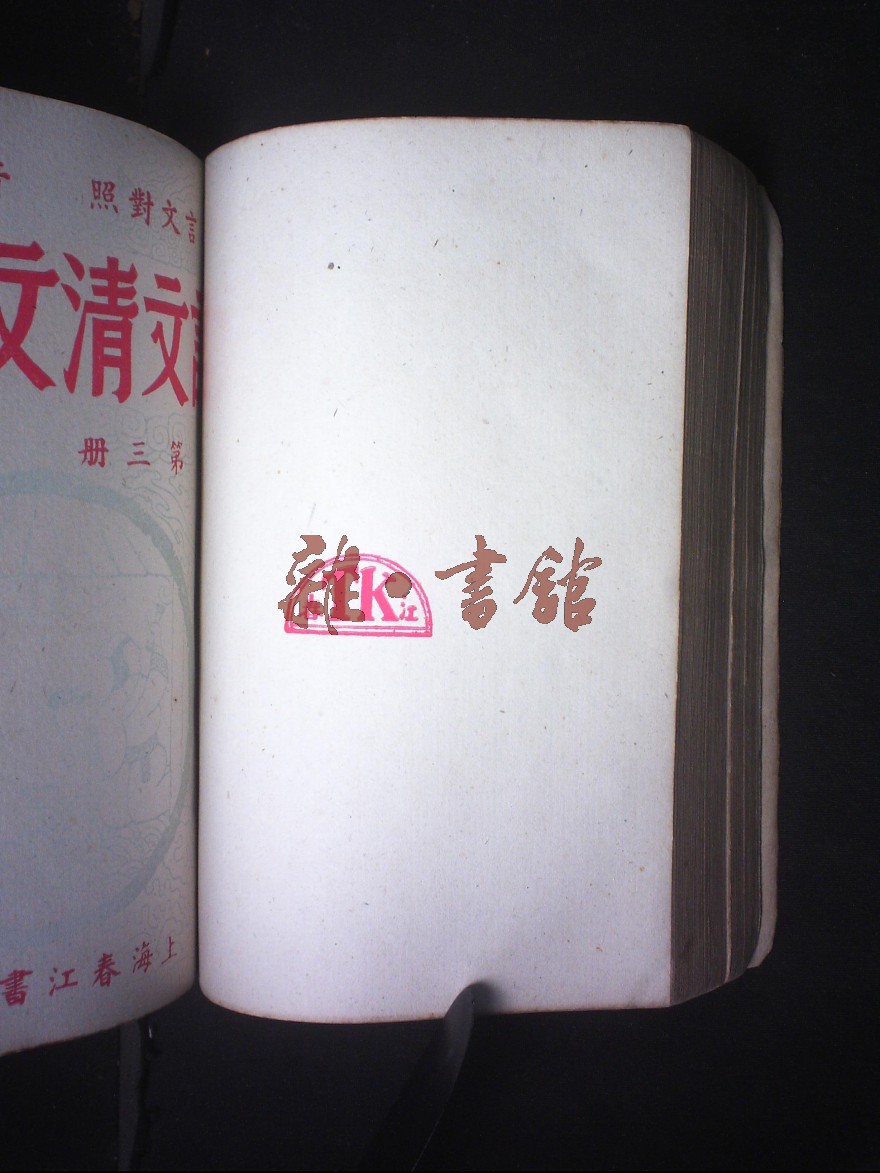 言文對照
文清文
第三册
上海春江書
雜·書館
K
江